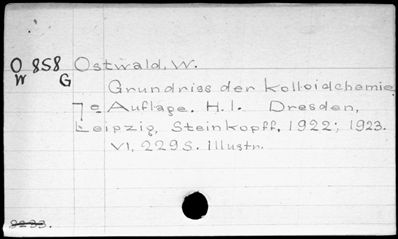 O 858 Ostwald, W.
W G
Grundriss der Kolloidchemie
7e Auflage. H.I. Dresden,
Leipzig, Steinkopff, 1922; 1923.
VI, 229 S. Illustr.
3233.